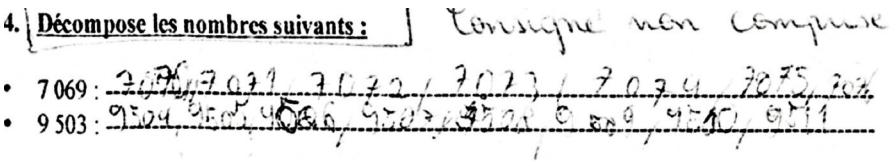 4. Décompose les nombres suivants : Consigne non comprise
• 7 069 : 7070, 7071, 7072, 7073, 7074, 7075, 7076
• 9 503 : 9504, 9505, 9506, 9507, 9508, 9509, 9510, 9511